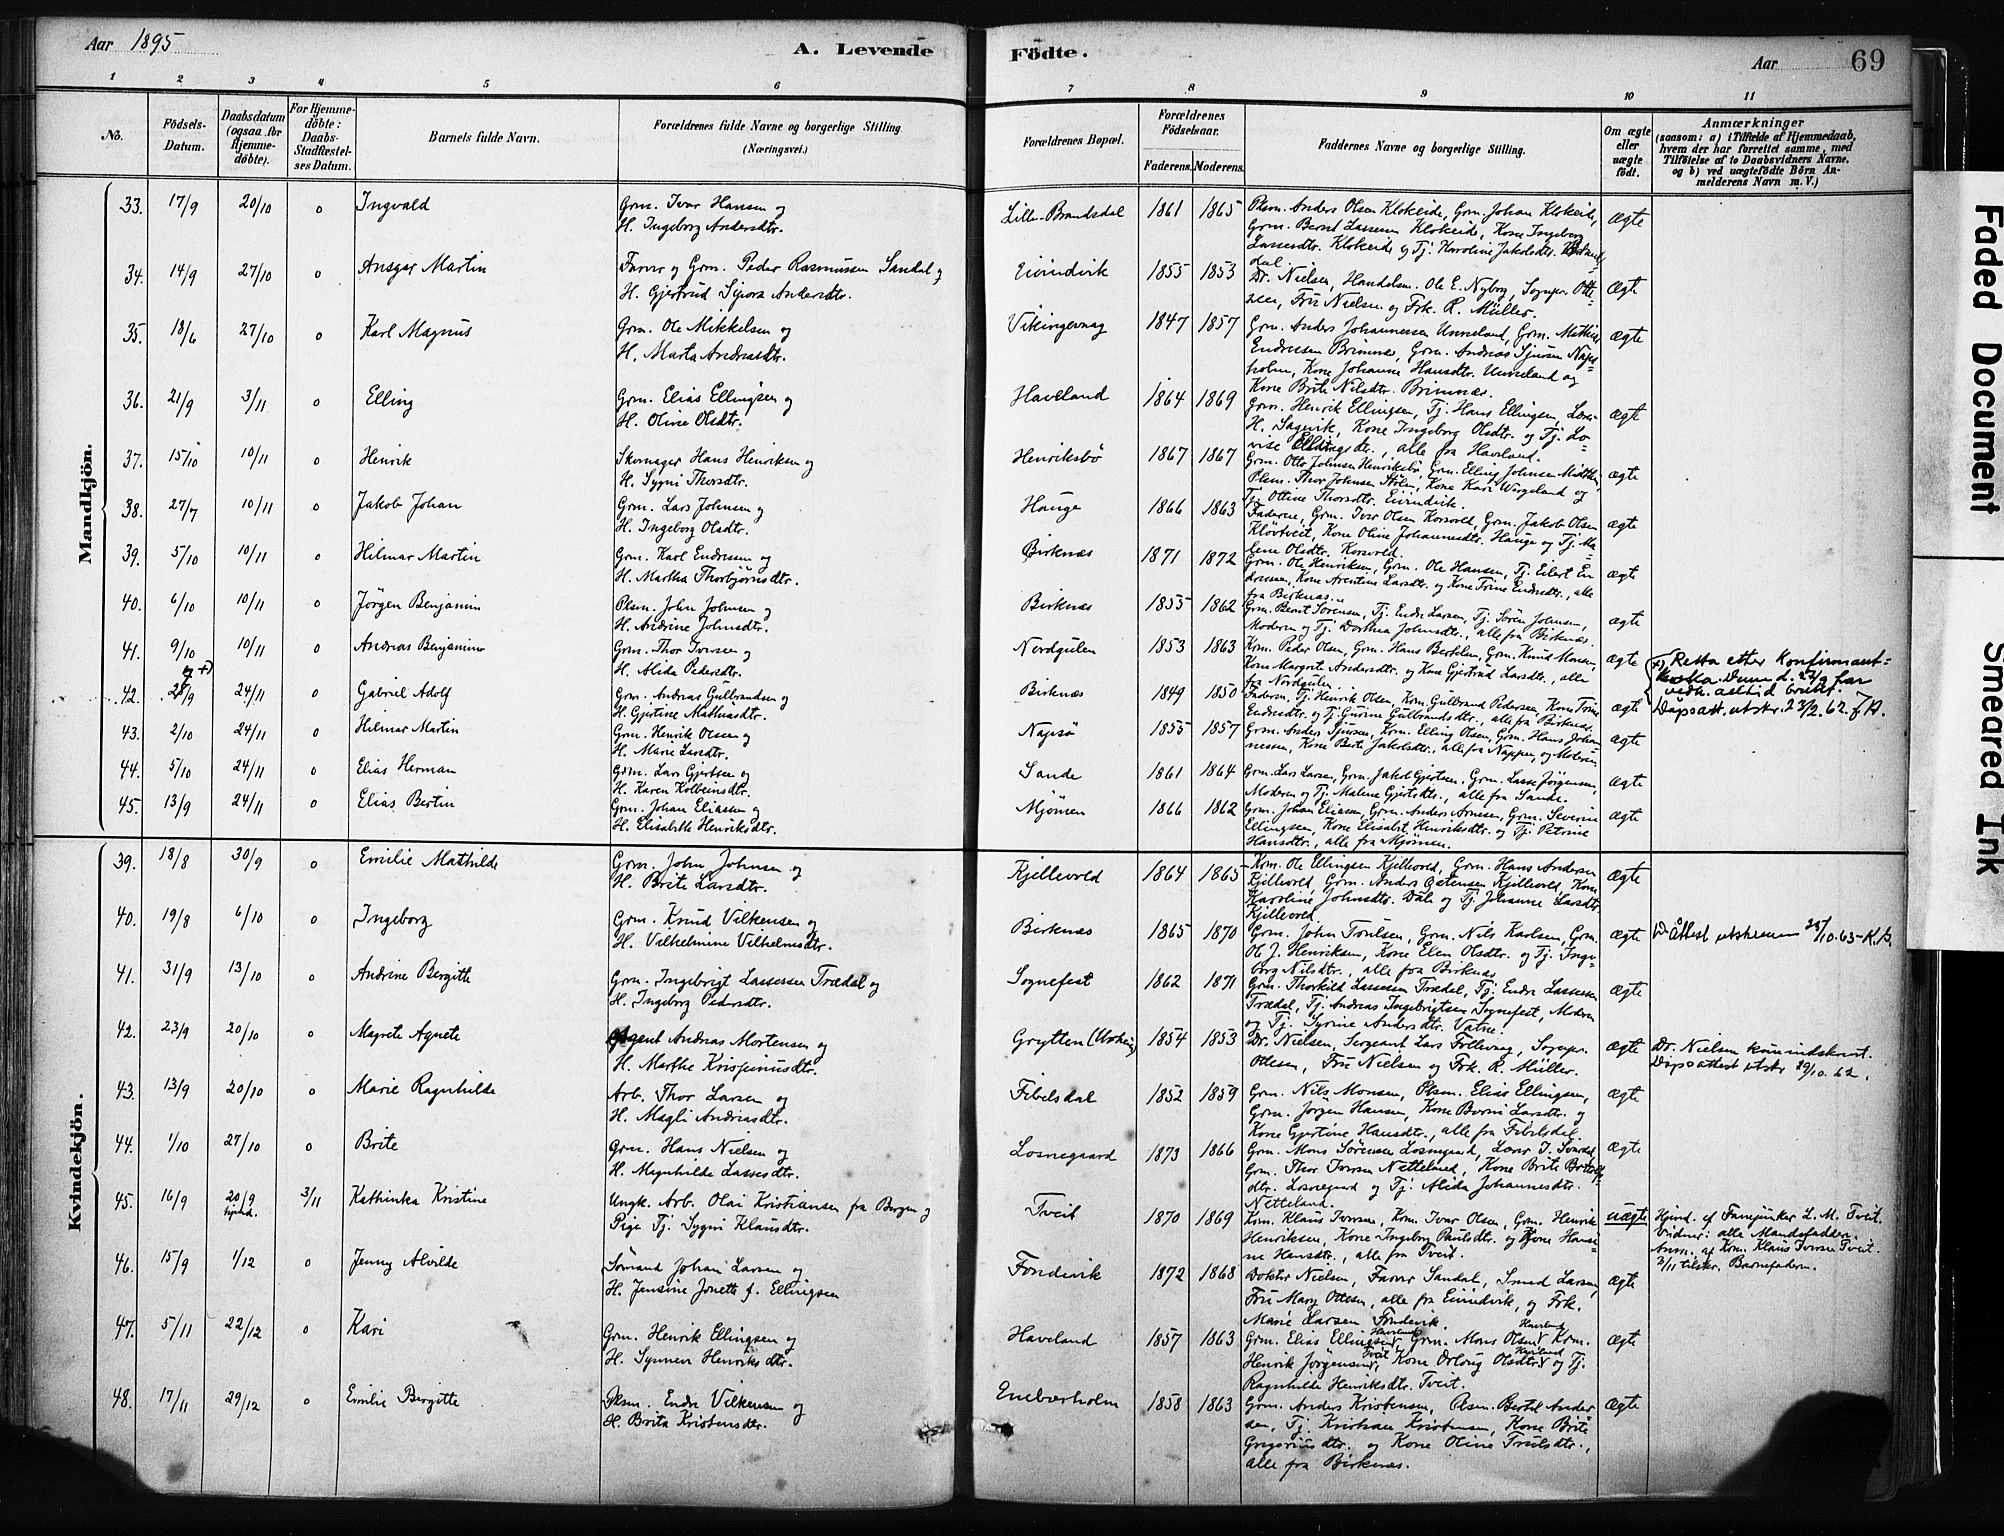 Aar 1895
A. Levende
Födte.
Aar
69
1 2 3 4 5 6 7 8 9 10 11
No.
Födsels-Datum.
Daabsdatum (ogsaa for Hjemmedöbte).
For Hjemmedöbte: Daabs-Stadfæstelses Datum.
Barnets fulde Navn.
Forældrenes fulde Navne og borgerlige Stilling. (Næringsvei.)
Forældrenes Bopæl.
Forældrenes Födselsaar.
Faderens. Moderens.
Faddernes Navne og borgerlige Stilling.
Om ægte eller uægte födt.
Anmærkninger
(saasom: a) i Tilfælde af Hjemmedaab, hvem der har forrettet samme, med Tilföielse af to Daabsvidners Navne, og b) ved uægtefödte Börn Anmelderens Navn m. V.)
Mandkjön.
33. 17/9 20/10 0 Ingvald
Grm. Ivar Hansen og
H. Ingeborg Andersdtr.
Lille-Brandsdal 1861 1865
Plsm. Anders Olsen Klokeide, Grm. Johan Klokeide,
Grm. Bernt Lassesen Klokeide, Kone Ingeborg
Lassesdtr. Klokeide og Tj. Karoline Jakobsdtr. Brands-
dal.
ægte
34. 14/9 27/10 0 Ansgar Martin
Farver og Grm. Peder Rasmussen Sandal og
H. Gjertrud Sipora Andersdtr.
Eivindvik 1855 1853
Dr. Nielsen, Handelsm. Ole E. Nyborg, Sognepr. Otte-
sen, Fru Nielsen og Frk. R. Müller.
ægte
35. 18/6 27/10 0 Karl Magnus
Grm. Ole Mikkelsen og
H. Marta Andreasdtr.
Vikingevaag 1847 1857
Grm. Anders Johannessen Unneland, Grm. Mathias
Endresen Brimnes, Grm. Andreas Sjursen Naps-
holm, Kone Johanne Hansdtr. Unneland og
Kone Brite Nilsdtr. Brimnes.
ægte
36. 21/9 3/11 0 Elling
Grm. Elias Ellingsen og
H. Oline Olsdtr.
Haveland 1864 1869
Grm. Henrik Ellingsen, Tj. Hans Ellingsen, Lærer
H. Sagvik, Kone Ingeborg Olsdtr. og Tj. Lo-
vise Ellingsdtr., alle fra Haveland.
ægte
37. 15/10 10/11 0 Henrik
Skomager Hans Henriksen og
H. Sygni Thorsdtr.
Henriksbø 1867 1867
Grm. Otto Johnsen Henriksbø, Grm. Elling Johnsen Midtun,
Plsm. Thor Johnsen Stølen, Kone Kari Wergeland og
Tj. Ottine Thorsdtr. Eivindvik.
ægte
38. 27/7 10/11 0 Jakob Johan
Grm. Lars Johnsen og
H. Ingeborg Olsdtr.
Hauge 1866 1863
Faderen, Grm. Ivar Olsen Korsvold, Grm. Jakob Olsen
Kløvtveit, Kone Oline Johannesdtr. Hauge og Tj. Ma-
lene Olsdtr. Korsvold.
ægte
39. 5/10 10/11 0 Hilmar Martin
Grm. Karl Endresen og
H. Martha Thorbjørnsdtr.
Birknæs 1871 1872
Grm. Ole Henriksen, Grm. Ole Hansen, Tj. Eilert En-
dresen, Kone Arentine Larsdtr. og Kone Trine Endresdtr., alle
fra Birknæs.
ægte
40. 6/10 10/11 0 Jörgen Benjamin
Plsm. John Johnsen og
H. Andrine Johnsdtr.
Birknæs 1855 1862
Grm. Bernt Sörensen, Tj. Endre Larsen, Tj. Sören Johnsen,
Moderen og Tj. Dorthea Johnsdtr., alle fra Birknæs.
ægte
41. 9/10 10/11 0 Andreas Benjamin
Grm. Thor Iversen og
H. Alida Pedersdtr.
Nordgulen 1853 1863
Kom. Peder Olsen, Grm. Hans Bertelsen, Grm. Knud Monsen,
Kone Margrete Andersdtr. og Kone Gjertrud Larsdtr., alle
fra Nordgulen.
ægte
42. 24/11 0 Gabriel Adolf
Grm. Andreas Gulbrandsen og
H. Gjertine Mathiasdtr.
Birknæs 1849 1850
Faderen, Tj. Henrik Olsen, Kom. Gulbrand Pedersen, Kone Trine
Endresdtr. og Tj. Gurine Gulbrandsdtr., alle fra Birknæs.
ægte
+) Retta etter Konfirmant-
boka. Denne d. 27/9 har
vedk. alltid brukt.
Dåpsatt. utskr. 23/2. 62. J. H.
43. 2/10 24/11 0 Hilmar Martin
Grm. Henrik Olsen og
H. Marie Larsdtr.
Napsø 1855 1857
Grm. Anders Sjursen, Kom. Elling Olsen, Grm. Hans Johan-
nessen, Kone Berte Jakobsdtr., alle fra Nappen, og Moderen
ægte
44. 5/10 24/11 0 Elias Herman
Grm. Lars Gjertsen og
H. Karen Kolbeinsdtr.
Sande 1861 1864
Grm. Lars Larsen, Grm. Jakob Gjertsen, Grm. Lasse Jørgensen,
Moderen og Tj. Malene Gjertsdtr., alle fra Sande.
ægte
45. 13/9 24/11 0 Elias Bertin
Grm. Johan Eliassen og
H. Elisabeth Henriksdtr.
Mjömen 1866 1862
Grm. Johan Eliassen, Grm. Anders Arnesen, Grm. Severin
Ellingsen, Kone Elisabet Henriksdtr. og Tj. Petrine
Hansdtr., alle fra Mjömen.
ægte
Kvindekjön.
39. 18/8 30/9 0 Emilie Mathilde
Grm. John Johnsen og
H. Brite Larsdtr.
Kjellevold 1864 1865
Kom. Ole Ellingsen Kjellevold, Grm. Hans Andersen
Kjellevold, Grm. Anders Østensen Kjellevold, Kone
Karoline Johnsdtr. Dale og Tj. Johanne Larsdtr.
Kjellevold
ægte
40. 19/8 6/10 0 Ingeborg
Grm. Knud Vilkensen og
H. Vilhelmine Vilhelmsdtr.
Birknæs 1865 1870
Grm. John Troulsen, Grm. Nils Karlsen, Grm.
Ole J. Henriksen, Kone Elen Olsdtr. og Tj. Inge-
borg Nilsdtr., alle fra Birknæs
ægte
Attest utskreven 28/10.63 - K. S.
41. 31/9 13/10 0 Andrine Bergitte
Grm. Ingebrigt Lassesen Trædal og
H. Ingeborg Pedersdtr.
Sognefest 1862 1871
Grm. Thorkild Lassesen Trædal, Tj. Endre Lassesen
Trædal, Tj. Andreas Ingebrigtsen Sognefest, Moderen
og Tj. Syrine Andersdtr. Vatne.
ægte
42. 23/9 20/10 0 Magrete Agnete
Agent Andreas Mortensen og
H. Marthe Krispinusdtr.
Grytten 1854 1853
Dr. Nielsen, Sergeant Lars Follevaag, Sognepr.
Ottesen, Fru Nielsen og Frk. R. Müller.
ægte
Dr. Nielsen kun indskrevet.
Dåpsattest utskr. 29/10. 62.
43. 13/9 20/10 0 Marie Ragnhilde
Arb. Thor Larsen og
H. Magli Andreasdtr.
Fibelsdal 1852 1859
Grm. Nils Monsen, Plsm. Elias Ellingsen,
Grm. Jörgen Hansen, Kone Borni Larsdtr. og
Kone Gjertine Hansdtr., alle fra Fibelsdal.
ægte
44. 1/10 27/10 0 Brite
Grm. Hans Nielsen og
H. Magnhilde Lassesdtr.
Losnegaard 1873 1866
Grm. Mons Sörensen Losnegaard, Lærer I. Svardal
Grm. Thor Iversen Netteland, Kone Brite
dtr. Losnegaard og Tj. Alida Johannesdtr.
Netteland.
ægte
45. 16/9 20/9 hjmd. 3/11 Kathinka Kristine
Ungk. Arb. Olai Kristiansen fra Bergen og
Pige Tj. Sygni Klausdtr.
Tveit 1870 1869
Kom. Klaus Iversen, Kom. Ivar Olsen, Grm. Henrik
Henriksen, Kone Ingeborg Paulsdtr. og Kone Hansi-
ne Hansdtr., alle fra Tveit.
uægte
Hjmd. af Fanejunker L. M. Tveit.
Vidner: alle Mandsfaddere.
Anm. af Kom. Klaus Iversen Tveit.
3/11 tilskr. Barnefaderen.
46. 15/9 1/12 0 Jenny Alvilde
Sømand Johan Larsen og
H. Jensine Jonette f. Ellingsen
Fondevik 1872 1868
Doktor Nielsen, Farver Sandal, Smed Larsen,
Fru Mary Ottesen, alle fra Eivindvik, og Frk.
Marie Larsen Fondevik.
ægte
47. 5/11 22/12 0 Kari
Grm. Henrik Ellingsen og
H. Synneve Henriksdtr.
Haveland 1857 1863
Grm. Elias Ellingsen Haveland, Grm. Mons Olsen Haveland, Kom.
Henrik Jörgensen Tveit, Kone Orlaug Olsdtr. Haveland og Tj.
Ragnhilde Henriksdtr. Tveit.
ægte
48. 17/11 29/12 0 Emilie Bergitte
Plsm. Endre Vilkensen og
H. Brita Kristensdtr.
Enebærholm 1858 1863
Grm. Anders Kristensen, Plsm. Bertel Ander-
sen, Tj. Kristian Kristensen, Kone Brite
Grigoriusdtr. og Kone Oline Trulsdtr.,
alle fra Birknæs.
ægte
Faded Document
Smeared Ink